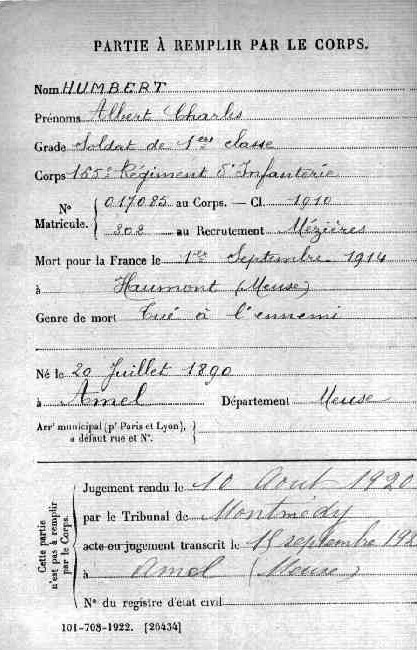 PARTIE À REMPLIR PAR LE CORPS.
Nom HUMBERT
Prénoms Albert Charles
Grade Soldat de 1ère classe
Corps 155e Régiment d'Infanterie
N° Matricule. { 017085 au Corps. — Cl. 1910
308 au Recrutement Mézières
Mort pour la France le 1er Septembre 1914
à Haumont (Meuse)
Genre de mort Tué à l'ennemi
Né le 20 Juillet 1890
à Amel Département Meuse
Arrt municipal (pr Paris et Lyon),
à défaut rue et N°.
Cette partie n'est pas à remplir par le Corps.
Jugement rendu le 10 Août 1920
par le Tribunal de Montmédy
acte ou jugement transcrit le 15 septembre
à Amel (Meuse)
N° du registre d'état civil
101-708-1922. [26434]